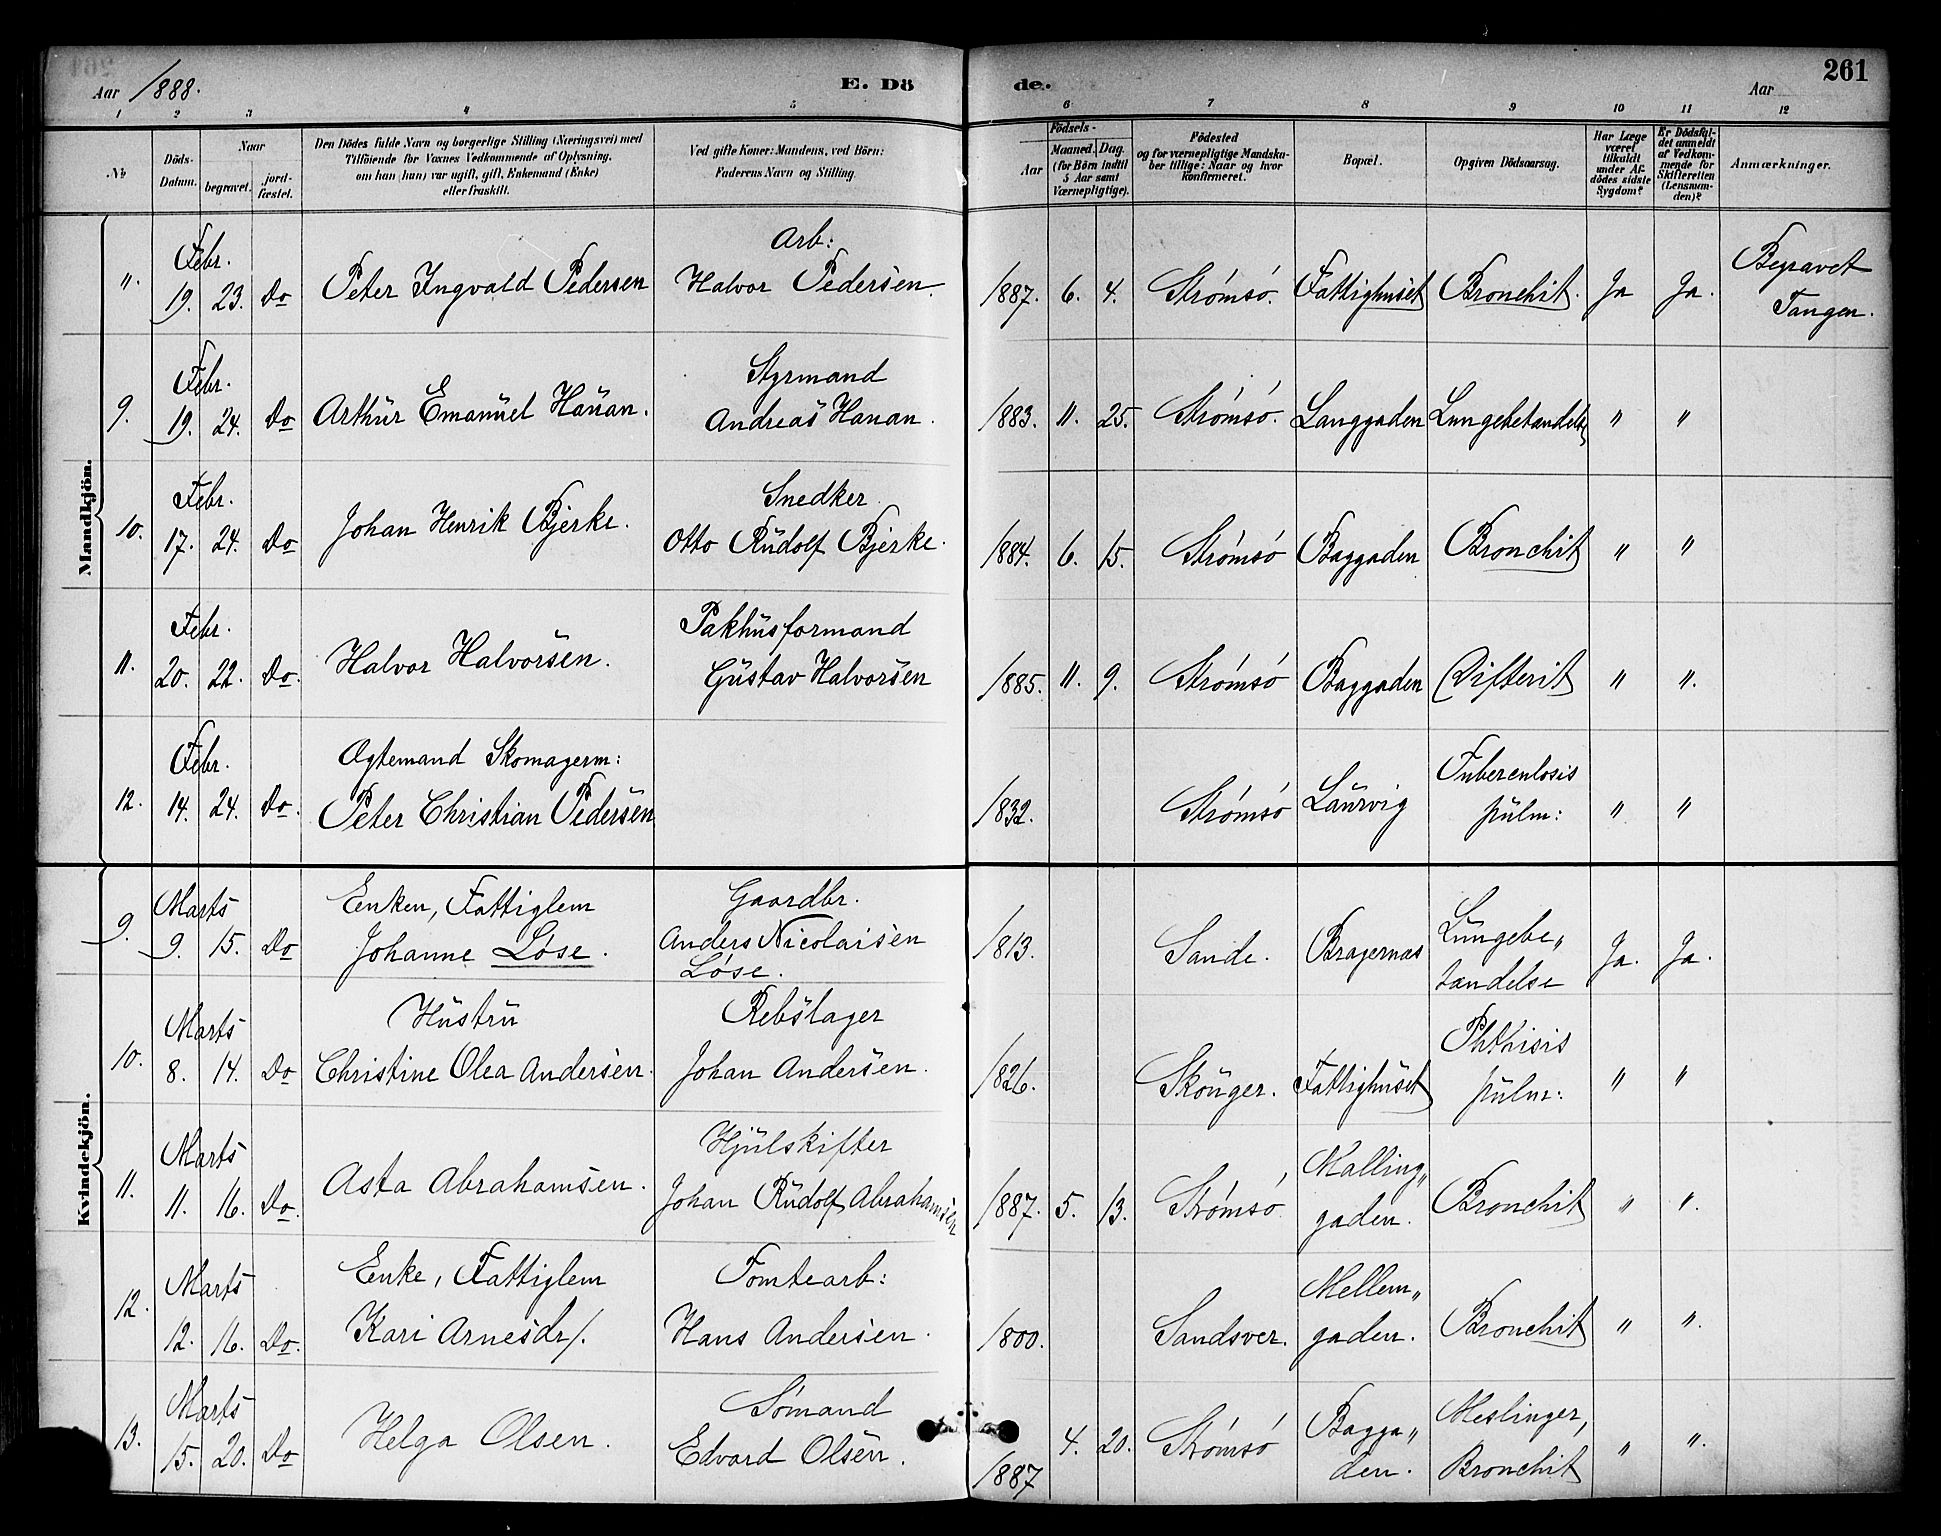 Aar 1888. E. Dö de. Aar 261
1 2 3 4 5 6 7 8 9 10 11 12
№
Döds-Datum.
Naar
begravet.
jord-fæstet.
Den Dödes fulde Navn og borgerlige Stilling (Næringsvei) med
Tilföiende for Voxnes Vedkommende af Oplysning,
om han (hun) var ugift, gift, Enkemand (Enke)
eller fraskilt.
Ved gifte Koner: Mandens, ved Börn:
Faderens Navn og Stilling.
Födsels-
Aar
Maaned. Dag.
(for Börn indtil
5 Aar samt
Værnepligtige).
Födested
og for værnepligtige Mandska-
ber tillige: Naar og hvor
konfirmeret.
Bopæl.
Opgiven Dödsaarsag.
Har Læge
været
tilkaldt
under Af-
dödes sidste
Sygdom?
Er Dödsfal-
det anmeldt
af Vedkom-
mende for
Skifteretten
(Lensmanden)?
Anmærkninger.
Mandkjön.
" Febr. 19. 23. Do Peter Ingvald Pedersen Arb: Halvor Pedersen. 1887. 6. 4. Strømsö. Fattighuset Bronchit. Ja Ja. Begravet Tangen.
9. Febr. 19. 24. Do Arthur Emanuel Hanan. Styrmand Andreas Hanan. 1883. 11. 25. Strømsö. Langgaden Lungebetændelse " "
10. Febr. 17. 24. Do Johan Henrik Bjerke. Snedker Otto Rudolf Bjerke. 1884. 6. 15. Strømsö Baggaden Bronchit " "
11. Febr. 20. 22. Do. Halvor Halvorsen. Pakhusformand Gustav Halvorsen 1885. 11. 9. Strømsö Baggaden Difterit " ".
12. Febr. 14. 24. Do. Ægtemand Skomagerm: Peter Christian Pedersen 1832. Strømsö Laurvig Tuberculosis pulm: " "
Kvindekjön.
9. Marts 9. 15. Do Enken, Fattiglem Johanne Løse. Gaardbr. Anders Nicolaisen Løse. 1813. Sande. Bragernæs Lungebe„tændelse Ja. Ja.
10. Marts 8. 14. Do Hustru Christine Olea Andersen. Rebslager Johan Andersen. 1826. Skouger. Fattighuset Phthisis pulm: " "
11. Marts 11. 16. Do. Asta Abrahamsen. Hjulskifter Johan Rudolf Abrahamsen 1887. 5. 13. Strømsö Malling„gaden. Bronchit " ".
12. Marts 12. 16. Do. Enke, Fattiglem Kari Arnesdr/. Tomtearb: Hans Andersen. 1800. Sandsver. Mellem„gaden. Bronchit " ".
13. Marts 15. 20. Do Helga Olsen. Sömand Edvard Olsen. 1887 4. 20. Strømsö Bagga„den. Meslinger, Bronchit " ".